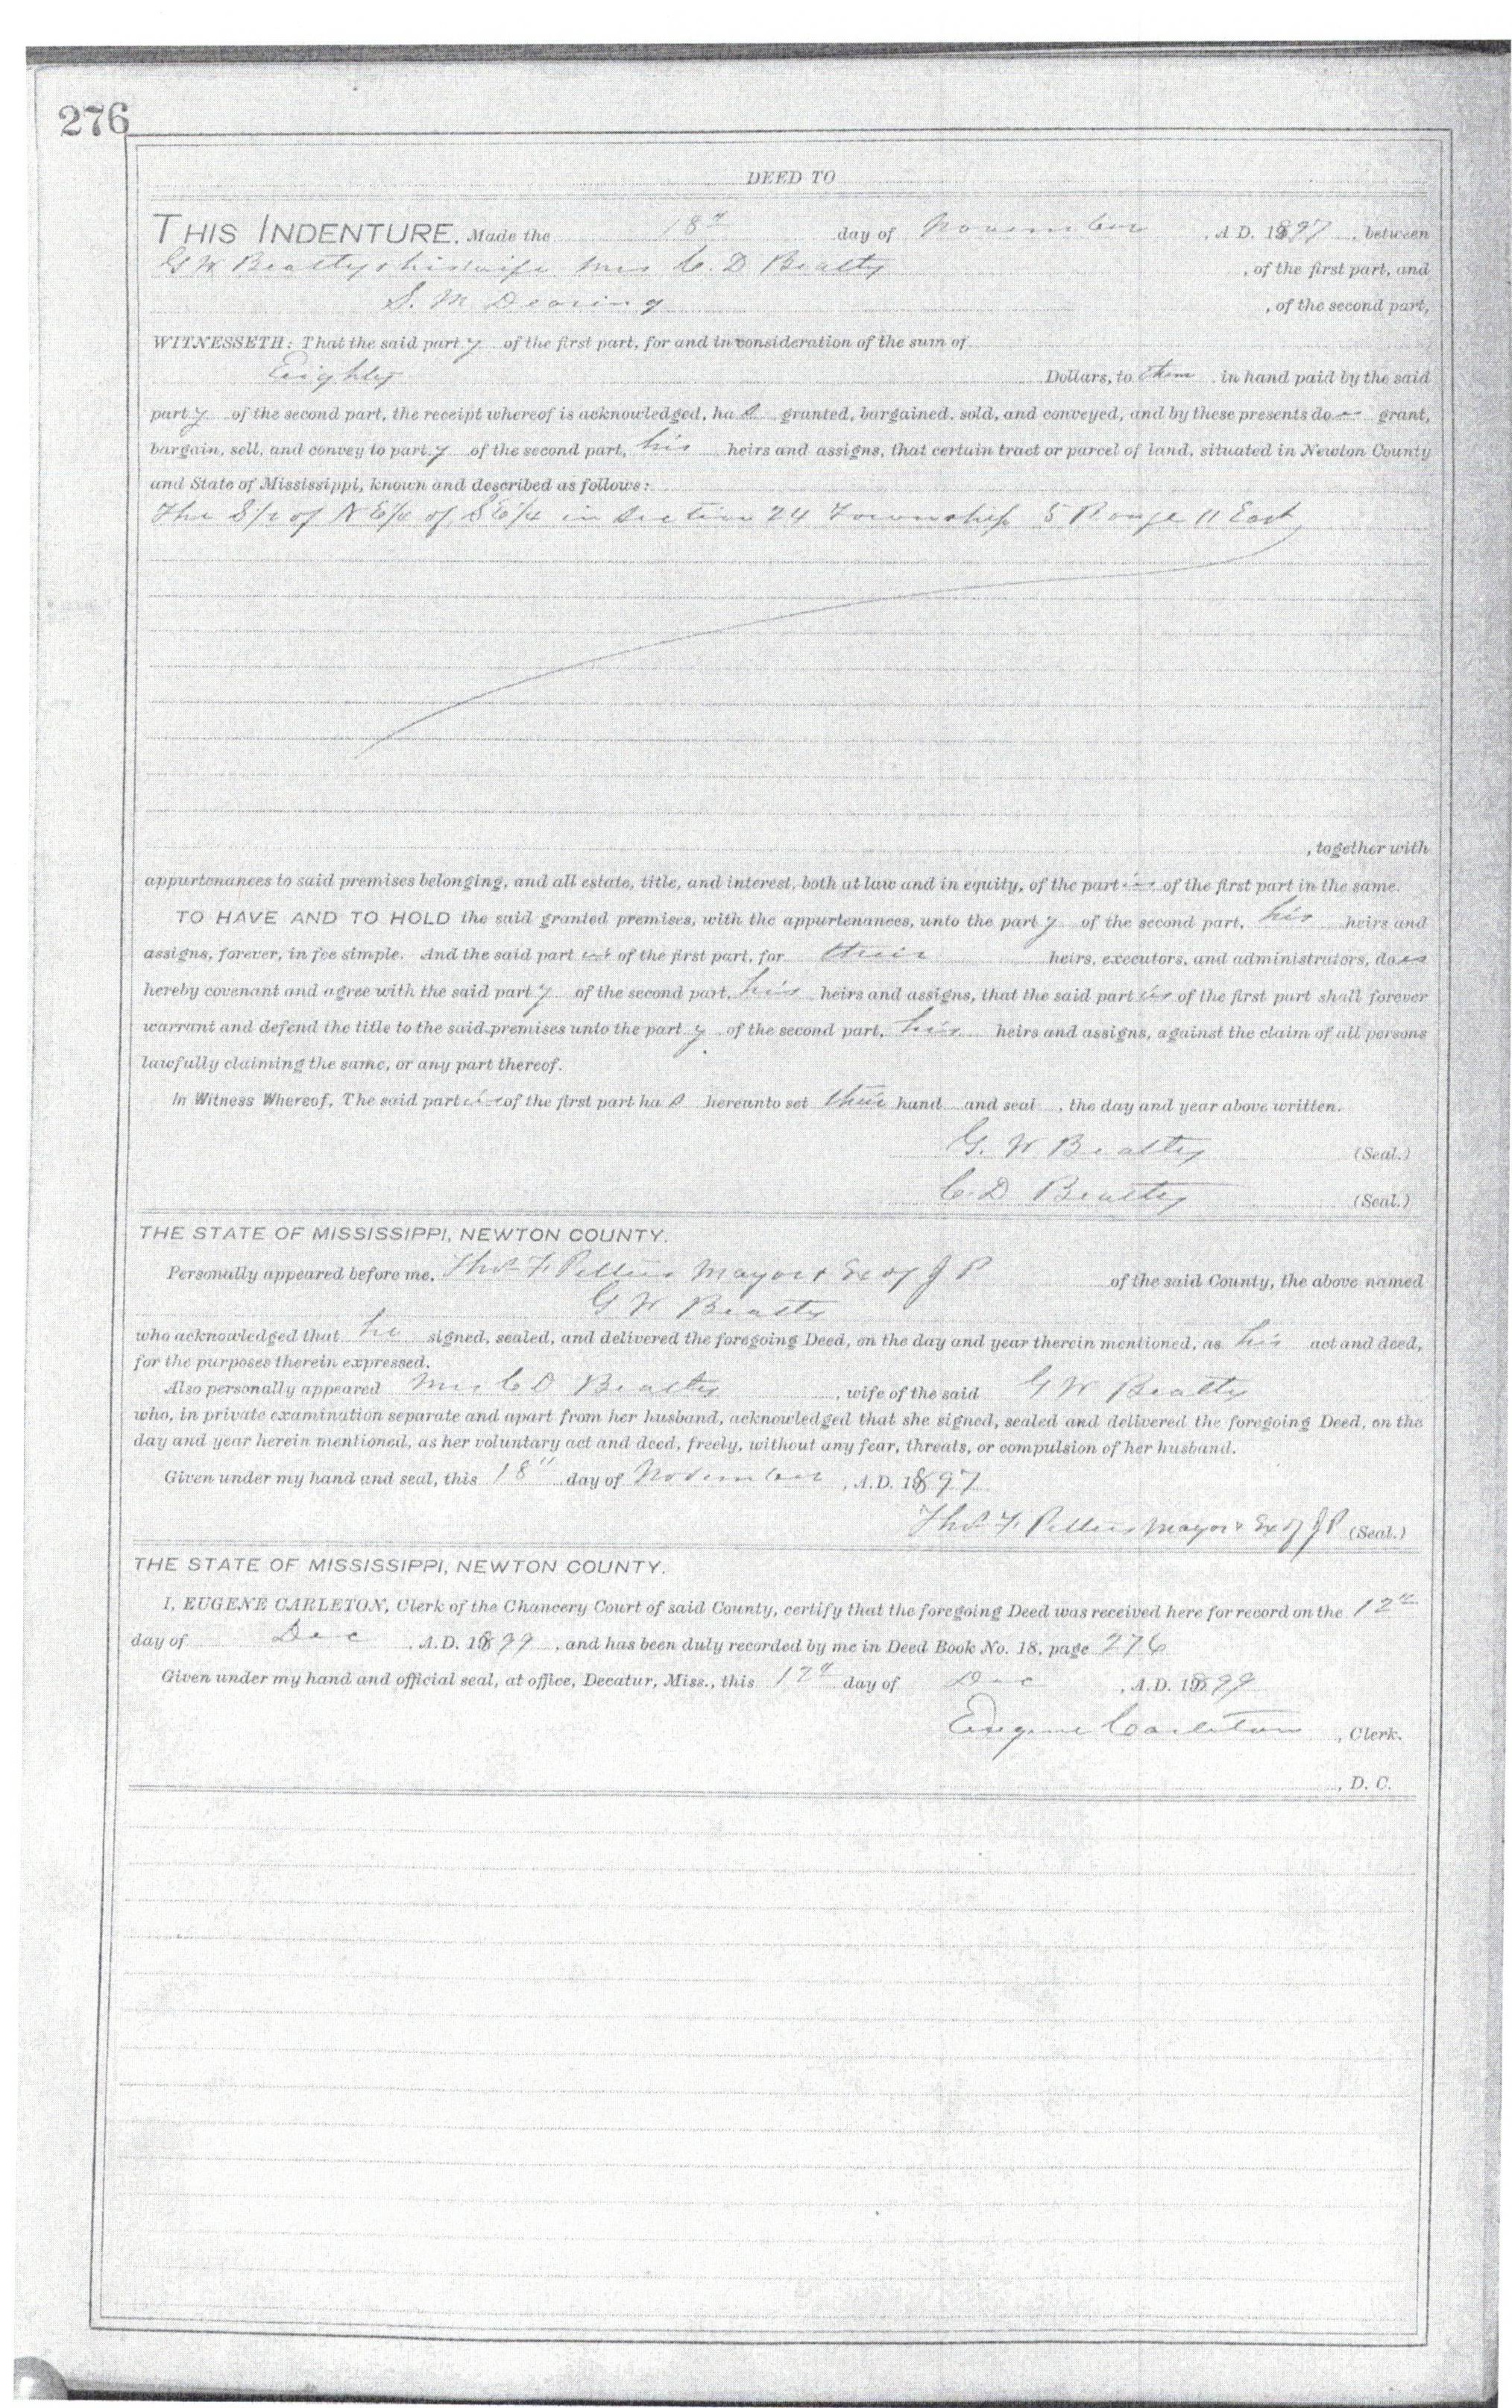 276
DEED TO
THIS INDENTURE, Made the 18th day of November, A. D. 1897, between
G W Beatty & his wife Mrs C. D Beatty, of the first part, and
S. M Dearing, of the second part,
WITNESSETH: That the said party of the first part, for and in consideration of the sum of
Eighty Dollars, to them in hand paid by the said
party of the second part, the receipt whereof is acknowledged, has granted, bargained, sold, and conveyed, and by these presents do grant,
bargain, sell, and convey to party of the second part, his heirs and assigns, that certain tract or parcel of land, situated in Newton County
and State of Mississippi, known and described as follows:
The S/2 of NE/4 of SE/4 in Section 24 Township 5 Range 11 East
, together with
appurtenances to said premises belonging, and all estate, title, and interest, both at law and in equity, of the parties of the first part in the same.
TO HAVE AND TO HOLD the said granted premises, with the appurtenances, unto the party of the second part, his heirs and
assigns, forever, in fee simple. And the said part of the first part, for their heirs, executors, and administrators, does
hereby covenant and agree with the said party of the second part, his heirs and assigns, that the said parties of the first part shall forever
warrant and defend the title to the said premises unto the party of the second part, his heirs and assigns, against the claim of all persons
lawfully claiming the same, or any part thereof.
In Witness Whereof, The said parties of the first part has hereunto set their hand and seal, the day and year above written.
G. W Beatty (Seal.)
C. D Beatty (Seal.)
THE STATE OF MISSISSIPPI, NEWTON COUNTY.
Personally appeared before me, Thos F. Mayor & Ex of J P of the said County, the above named
G W Beatty
who acknowledged that he signed, sealed, and delivered the foregoing Deed, on the day and year therein mentioned, as his act and deed,
for the purposes therein expressed.
Also personally appeared Mrs C D Beatty, wife of the said G W Beatty
who, in private examination separate and apart from her husband, acknowledged that she signed, sealed and delivered the foregoing Deed, on the
day and year herein mentioned, as her voluntary act and deed, freely, without any fear, threats, or compulsion of her husband.
Given under my hand and seal, this 18" day of November, A.D. 1897
Thos F. Mayor & Ex of J P (Seal.)
THE STATE OF MISSISSIPPI, NEWTON COUNTY.
I, EUGENE CARLETON, Clerk of the Chancery Court of said County, certify that the foregoing Deed was received here for record on the 12th
day of Dec, A.D. 1899, and has been duly recorded by me in Deed Book No. 18, page 276
Given under my hand and official seal, at office, Decatur, Miss., this 12th day of Dec, A.D. 1899
Eugene Carleton, Clerk.
, D. C.